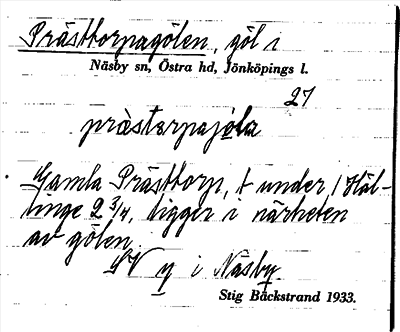 Prästtorpagölen, göl i
Näsby sn, Östra hd, Jönköpings l.
27
prästərpajöla
Gamla Prästtorp, t under 1 Häl-
linge 2 3/4, ligger i närheten
av gölen.
SV y i Näsby.
Stig Bäckstrand 1933.